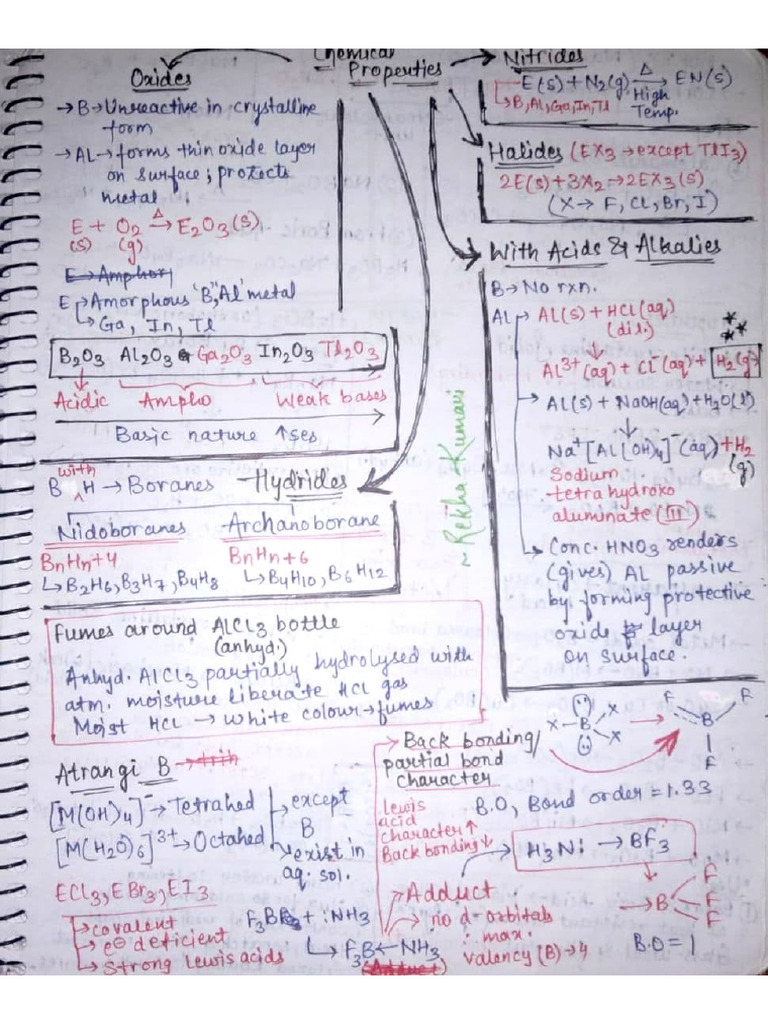 Chemical
Properties
Oxides
→ B → Unreactive in crystalline
form
→ AL → forms thin oxide layer
on surface; protects
metal
E + O2 →Δ E2O3(s)
(s) (g)
E → Amphor
E → Amorphous 'B', 'Al' metal
→ Ga, In, Tl
B2O3 Al2O3 Ga2O3 In2O3 Tl2O3
Acidic Ampho Weak bases
Basic nature ↑ses
Nitrides
E(s) + N2(g) →Δ EN(s)
→ B, Al, Ga, In, Tl High
Temp.
Halides (EX3 → except TlI3)
2E(s) + 3X2 → 2EX3(s)
(X → F, Cl, Br, I)
With Acids & Alkalies
B → No rxn.
AL → Al(s) + HCl(aq)
(dil.)
↓
Al3+(aq) + Cl-(aq) + H2(g)
→ Al(s) + NaOH(aq) + H2O(l)
↓
Na+[Al(OH)4]-(aq) + H2
(g)
Sodium
tetra hydroxo
aluminate (III)
→ Conc. HNO3 renders
(gives) AL passive
by forming protective
oxide layer
on surface.
~ Rekha Kumari
Hydrides
B with H → Boranes
Nidoboranes Archanoborane
BnHn+4 BnHn+6
→ B2H6, B3H7, B4H8 → B4H10, B6H12
Fumes around AlCl3 bottle
(anhyd.)
Anhyd. AlCl3 partially hydrolysed with
atm. moisture liberate HCl gas
Moist HCl → white colour → fumes
Atrangi B
[M(OH)4] → Tetrahed → except
B
[M(H2O)6]3+ → Octahed → exist in
aq. sol.
ECl3, EBr3, EI3
→ covalent
→ e⊖ deficient
→ Strong lewis acids
F3B + :NH3
→ F3B ← NH3
(Adduct)
Back bonding/
partial bond
character
X B X
X
F B F
F
B.O, Bond order = 1.33
lewis
acid
character ↑
Back bonding ↓
H3N: → BF3
→ B F
F
F
B.O = 1
→ Adduct
→ no d-orbitals
∴ max.
valency (B) → 4